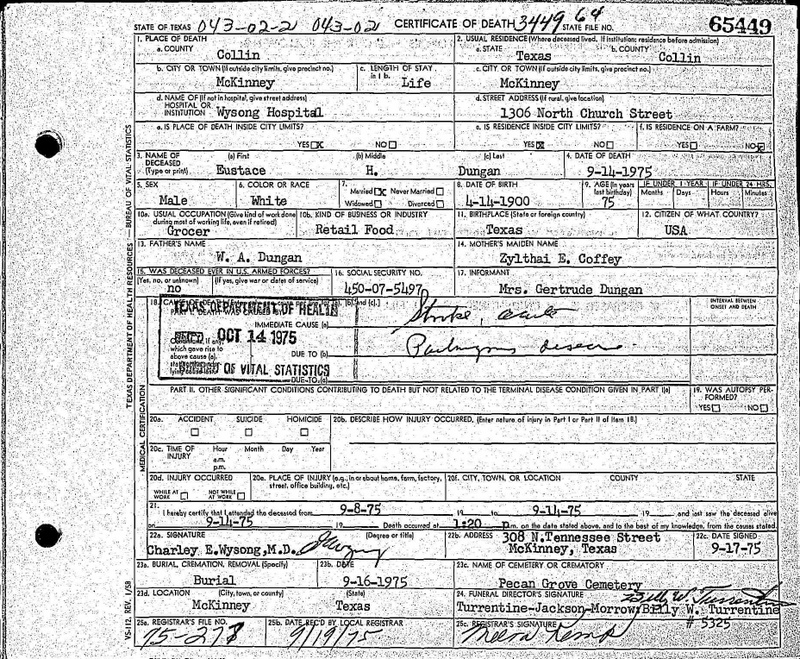 STATE OF TEXAS 043-02-2 043-02 CERTIFICATE OF DEATH 3449 64 STATE FILE NO. 65449
1. PLACE OF DEATH 2. USUAL RESIDENCE (Where deceased lived. If institution: residence before admission)
a. COUNTY Collin a. STATE Texas b. COUNTY Collin
b. CITY OR TOWN (If outside city limits, give precinct no.) McKinney c. LENGTH OF STAY in 1 b. Life c. CITY OR TOWN (If outside city limits, give precinct no.) McKinney
d. NAME OF (If not in hospital, give street address) HOSPITAL OR INSTITUTION Wysong Hospital d. STREET ADDRESS (If rural, give location) 1306 North Church Street
e. IS PLACE OF DEATH INSIDE CITY LIMITS? YES X NO e. IS RESIDENCE INSIDE CITY LIMITS? YES X NO f. IS RESIDENCE ON A FARM? YES NO X
3. NAME OF DECEASED (Type or print) (a) First Eustace (b) Middle H. (c) Last Dungan 4. DATE OF DEATH 9-14-1975
5. SEX Male 6. COLOR OR RACE White 7. Married X Never Married Widowed Divorced 8. DATE OF BIRTH 4-14-1900 9. AGE (In years last birthday) 75 IF UNDER 1 YEAR Months Days IF UNDER 24 HRS. Hours Minutes
10a. USUAL OCCUPATION (Give kind of work done during most of working life, even if retired) Grocer 10b. KIND OF BUSINESS OR INDUSTRY Retail Food 11. BIRTHPLACE (State or foreign country) Texas 12. CITIZEN OF WHAT COUNTRY? USA
13. FATHER'S NAME W. A. Dungan 14. MOTHER'S MAIDEN NAME Zylthai E. Coffey
15. WAS DECEASED EVER IN U.S. ARMED FORCES? (Yes, no, or unknown) no (If yes, give war or dates of service) 16. SOCIAL SECURITY NO. 450-07-5497 17. INFORMANT Mrs. Gertrude Dungan
18. INTERVAL BETWEEN ONSET AND DEATH
TEXAS DEPARTMENT OF HEALTH
IMMEDIATE CAUSE (a) Stroke, acute
OCT 14 1975
which gave rise to above cause (a), DUE TO (b) disease
BUREAU OF VITAL STATISTICS
DUE TO (c)
PART II. OTHER SIGNIFICANT CONDITIONS CONTRIBUTING TO DEATH BUT NOT RELATED TO THE TERMINAL DISEASE CONDITION GIVEN IN PART I(a) 19. WAS AUTOPSY PERFORMED? YES NO
20a. ACCIDENT SUICIDE HOMICIDE 20b. DESCRIBE HOW INJURY OCCURRED. (Enter nature of injury in Part I or Part II of item 18.)
20c. TIME OF INJURY Hour a.m. p.m. Month Day Year
20d. INJURY OCCURRED WHILE AT WORK NOT WHILE AT WORK 20e. PLACE OF INJURY (e.g., in or about home, farm, factory, street, office building, etc.) 20f. CITY, TOWN, OR LOCATION COUNTY STATE
21. I hereby certify that I attended the deceased from 9-8-75 19 to 9-14-75 19 and last saw the deceased alive
on 9-14-75 19 Death occurred at 1:20 p.m. on the date stated above, and to the best of my knowledge, from the causes stated.
22a. SIGNATURE Charley E. Wysong, M.D. (Degree or title) 22b. ADDRESS 308 N. Tennessee Street McKinney, Texas 22c. DATE SIGNED 9-17-75
23a. BURIAL, CREMATION, REMOVAL (Specify) Burial 23b. DATE 9-16-1975 23c. NAME OF CEMETERY OR CREMATORY Pecan Grove Cemetery
23d. LOCATION (City, town, or county) McKinney (State) Texas 24. FUNERAL DIRECTOR'S SIGNATURE Billy W. Turrentine
Turrentine-Jackson-Morrow; Billy W. Turrentine
25a. REGISTRAR'S FILE NO. 75-278 25b. DATE REC'D BY LOCAL REGISTRAR 9/19/75 25c. REGISTRAR'S SIGNATURE # 5325
TEXAS DEPARTMENT OF HEALTH RESOURCES — BUREAU OF VITAL STATISTICS
MEDICAL CERTIFICATION
VS-112, REV. 1/58